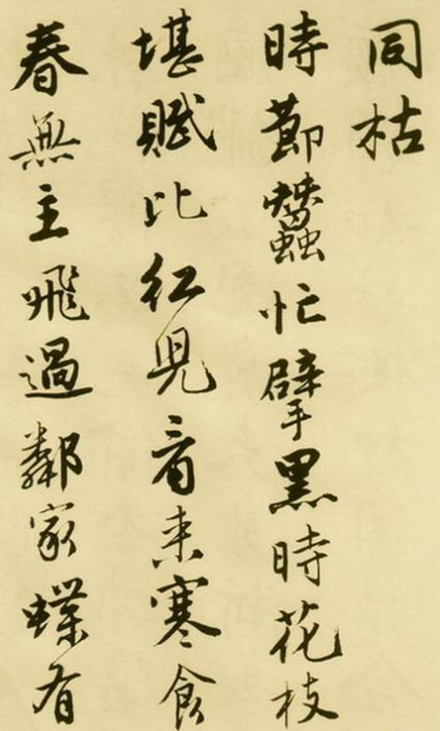 同枯
時莭蠶忙擘黑時花枝
堪賦比紅兒看来寒食
春無主飛過鄰家蝶有